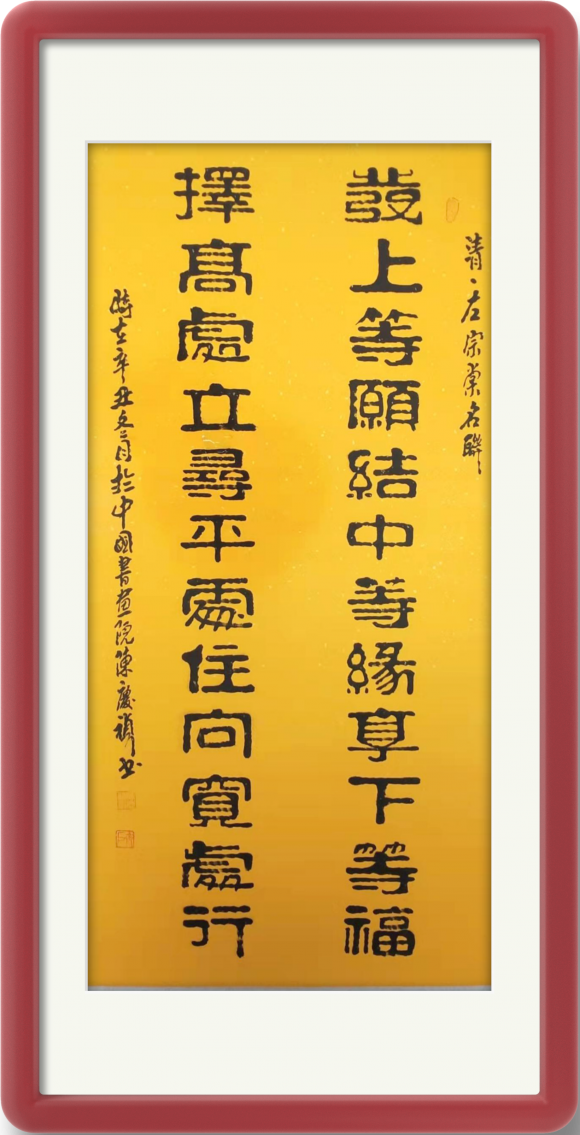 清、左宗棠名聯
發上等願結中等緣享下等福
擇高處立尋平處住向寬處行
時在辛丑冬月於中國書畫院陳慶禎書